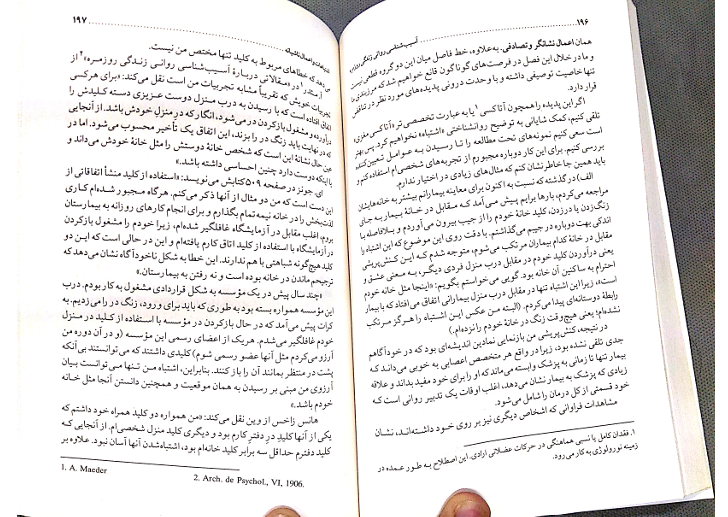 ۱۹۶
آسیب‌شناسی روانی زندگی روزمره
همان اعمال نشانگر و تصادفی. به‌علاوه، خط فاصل میان این دو گروه قطعی نیست
و ما در خلال این فصل در فرصت‌های گوناگون قانع خواهیم شد که مرزبندی
تنها خاصیت توصیفی داشته و با وحدت درونی پدیده‌های مورد نظر در تناقض
قرار دارد.
اگر این پدیده را همچون آتاکسی۱ یا به عبارت تخصصی‌تر «آتاکسی مغزی»
تلقی کنیم، کمک شایانی به توضیح روانشناختی «اشتباه» نخواهیم کرد. پس بهتر
است سعی کنیم نمونه‌های تحت مطالعه را تا رسیدن به عوامل تعیین‌کننده
بررسی کنیم. برای این کار دوباره مجبورم از تجربه‌های شخصی‌ام استفاده کنم و
باید همین جا خاطرنشان کنم که مثال‌های زیادی در اختیار ندارم.
الف) در گذشته که نسبت به اکنون برای معاینه بیمارانم بیشتر به خانه‌هایشان
مراجعه می‌کردم، بارها برایم پیش می‌آمد که مقابل در خانهٔ بیمار به جای
زنگ‌زدن یا در زدن، کلید خانهٔ خودم را از جیب بیرون می‌آوردم و بلافاصله با
اندکی بهت دوباره در جیبم می‌گذاشتم. با دقت روی این موضوع که این اشتباه را
مقابل در خانهٔ کدام بیماران مرتکب می‌شوم، متوجه شدم که این کنش‌پریشی
یعنی درآوردن کلید خودم در مقابل درب منزل فردی دیگر، به معنی عشق و
احترام به ساکنین آن خانه بود. گویی می‌خواستم بگویم: «اینجا مثل خانه خودم
است»، زیرا این اشتباه تنها در مقابل درب منزل بیمارانی اتفاق می‌افتاد که با بیمار
رابطهٔ دوستانه‌ای پیدا می‌کردم. (البته من عکس این اشتباه را هرگز مرتکب
نشده‌ام؛ یعنی هیچ‌وقت زنگ در خانهٔ خودم را نزده‌ام.)
در نتیجه، کنش‌پریشی من بازنمایی نمادین اندیشه‌ای بود که در خودآگاهم
جدی تلقی نشده بود، زیرا در واقع هر متخصص اعصابی به خوبی می‌داند که
بیمار تنها تا زمانی به پزشک وابسته می‌ماند که او را برای خود مفید بداند و علاقه
زیادی که پزشک به بیمار نشان می‌دهد، اغلب اوقات یک تدبیر روانی است که
خود قسمتی از کل درمان را شامل می‌شود.
مشاهدات فراوانی که اشخاص دیگری نیز بر روی خود داشته‌اند، نشان
۱. فقدان کامل یا نسبی هماهنگی در حرکات عضلانی ارادی. این اصطلاح به طور عمده در
زمینه نورولوژی به کار می‌رود.
۱۹۷
می‌دهد که خطاهای مربوط به کلید تنها مختص من نیست.
آ. مِدر۱ در «مقالاتی دربارهٔ آسیب‌شناسی روانی زندگی روزمره»۲ از
تجربیات خویش که تقریباً مشابه تجربیات من است نقل می‌کند: «برای هرکسی
اتفاق افتاده است که با رسیدن به درب منزل دوست عزیزی دسته کلیدش را
درآورده و مشغول بازکردن در می‌شود، انگار که در منزل خودش باشد. از آنجایی
که در نهایت باید زنگ در را بزند، این اتفاق یک تأخیر محسوب می‌شود. اما در
عین حال نشانهٔ این است که شخص خانهٔ دوستش را مثل خانهٔ خودم می‌داند و
یا اینکه دوست دارد چنین احساسی داشته باشد.»
ای. جونز در صفحه ۵۰۹ کتابش می‌نویسد: «استفاده از کلید منشأ اتفاقاتی از
این دست است که من دو مثال از آنها ذکر می‌کنم. هرگاه مجبور شده‌ام کاری
لذت‌بخش را در خانه نیمه تمام بگذارم و برای انجام کارهای روزانه به بیمارستان
بروم، اغلب مقابل در آزمایشگاه غافلگیر شده‌ام، زیرا خودم را مشغول بازکردن
در آزمایشگاه با استفاده از کلید اتاق کارم یافته‌ام و این در حالی است که این دو
کلید هیچ‌گونه شباهتی با هم ندارند. این خطا به شکل ناخودآگاه نشان می‌دهد که
ترجیحم ماندن در خانه بوده است و نه رفتن به بیمارستان.»
«چند سال پیش در یک مؤسسه به شکل قراردادی مشغول به کار بودم. درب
این مؤسسه همواره بسته بود به طوری که باید برای ورود، زنگ در را می‌زدیم. به
کرات پیش می‌آمد که در حال بازکردن در مؤسسه با استفاده از کلید در منزل
خودم غافلگیر می‌شدم. هریک از اعضای رسمی این مؤسسه (و در آن دوره من
آرزو می‌کردم مثل آنها عضو رسمی شوم) کلیدی داشتند که می‌توانستند بی‌آنکه
پشت در منتظر بمانند آن را باز کنند. بنابراین، اشتباه من تنها می‌توانست بیان
آرزوی من مبنی بر رسیدن به همان موقعیت و همچنین دانستن آنجا مثل خانه
خودم باشد.»
هانس زاخس از وین نقل می‌کند: «من همواره دو کلید همراه خود داشتم که
یکی از آنها کلید در دفتر کارم بود و دیگری کلید منزل شخصی‌ام. از آنجایی که
کلید دفترم حداقل سه برابر کلید خانه‌ام بود، اشتباه‌شدن آنها آسان نبود. علاوه بر
1. A. Maeder
2. Arch. de Psychol., VI, 1906.